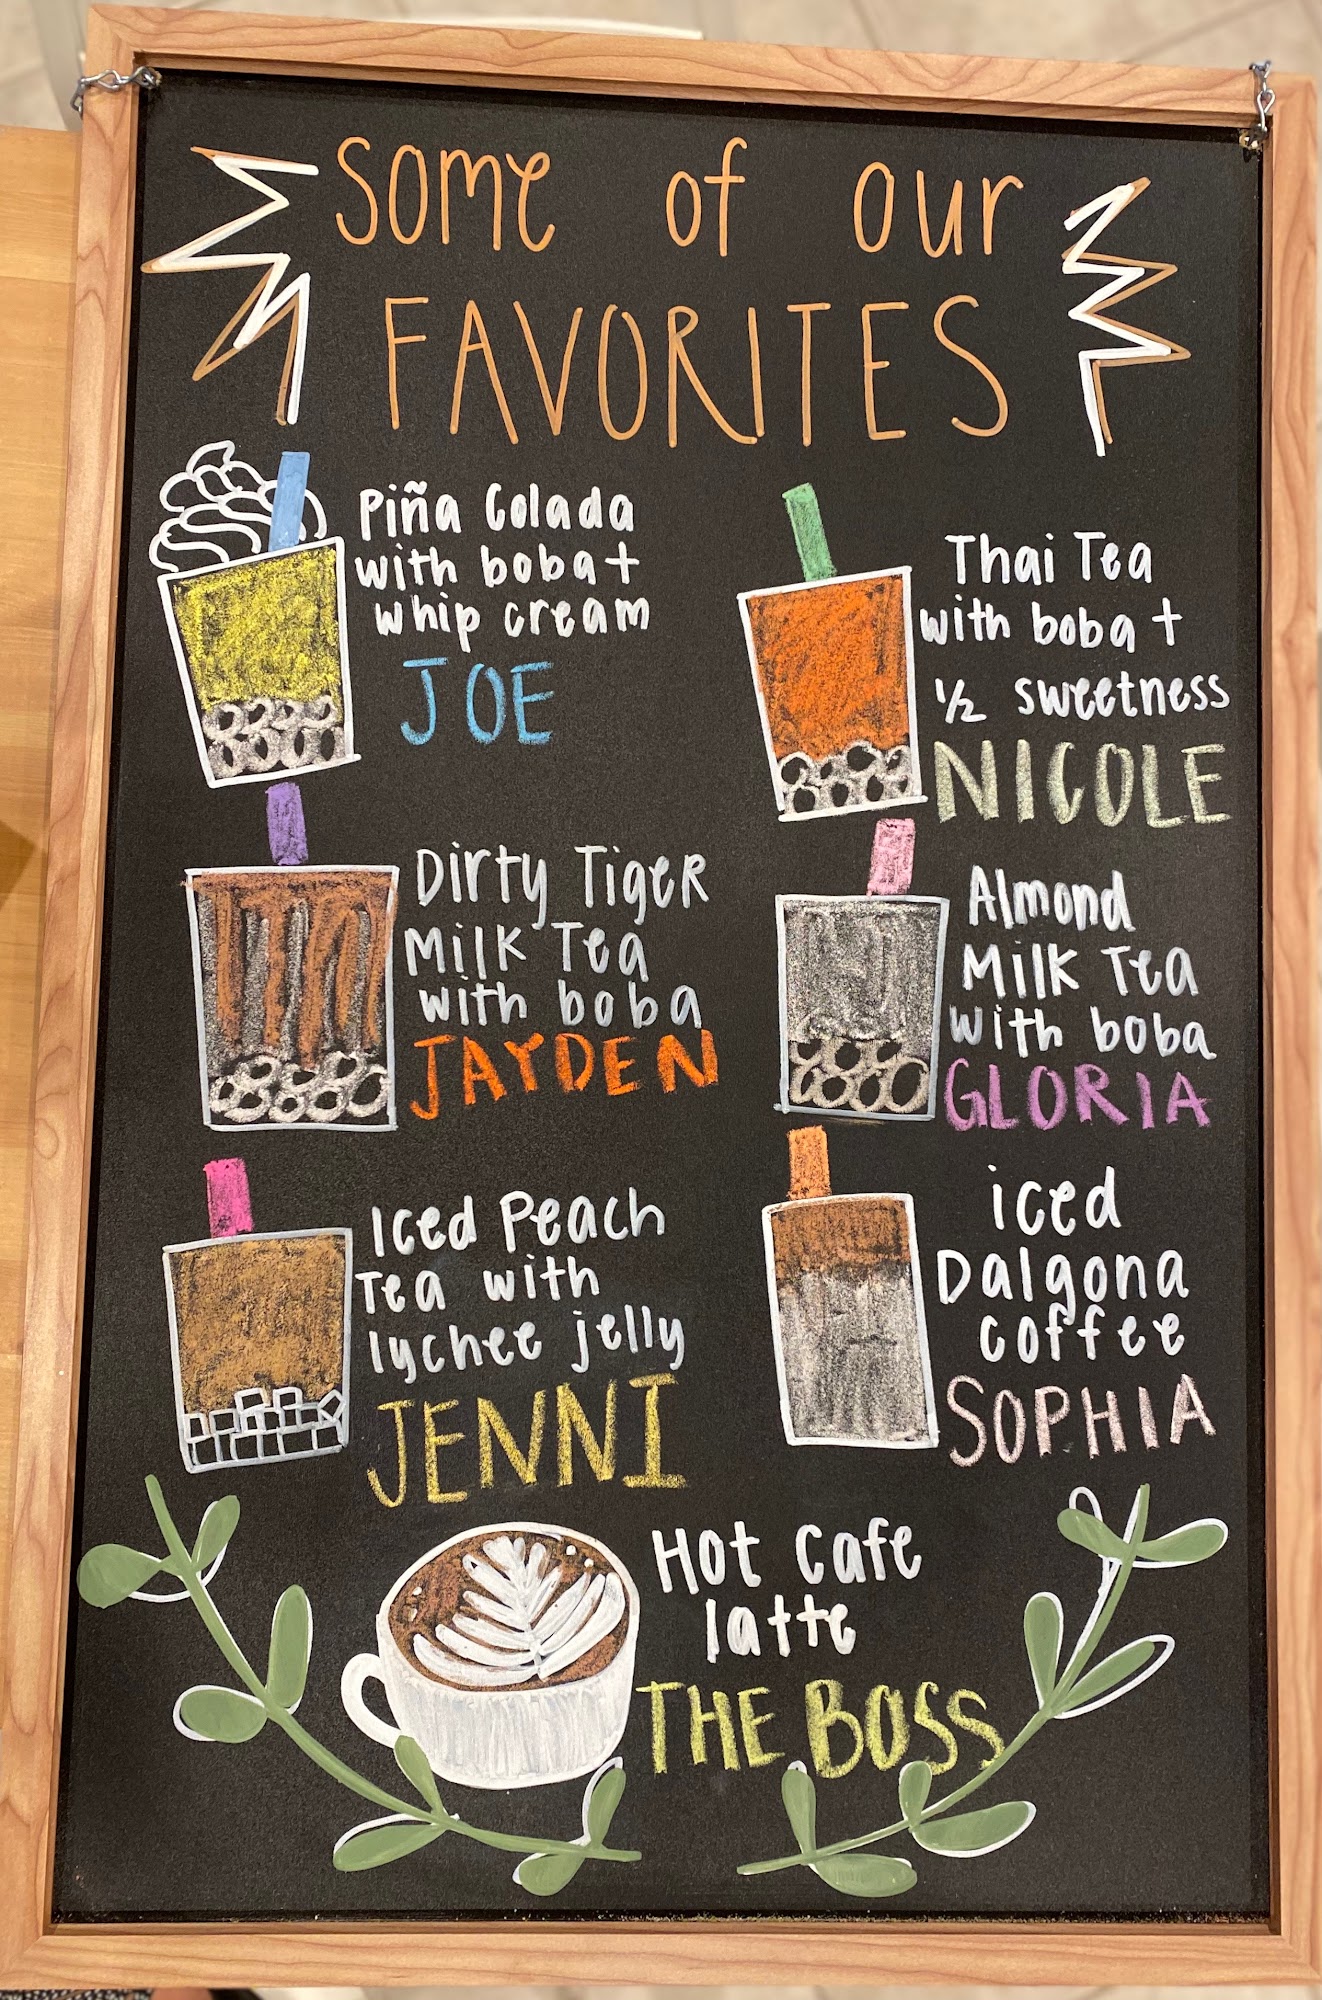 some of our
FAVORITES
Piña Colada
with boba +
whip cream
JOE
Thai Tea
with boba +
1/2 sweetness
NICOLE
Dirty Tiger
Milk Tea
with boba
JAYDEN
Almond
Milk Tea
with boba
GLORIA
Iced Peach
Tea with
lychee jelly
JENNI
iced
Dalgona
coffee
SOPHIA
Hot Cafe
latte
THE BOSS